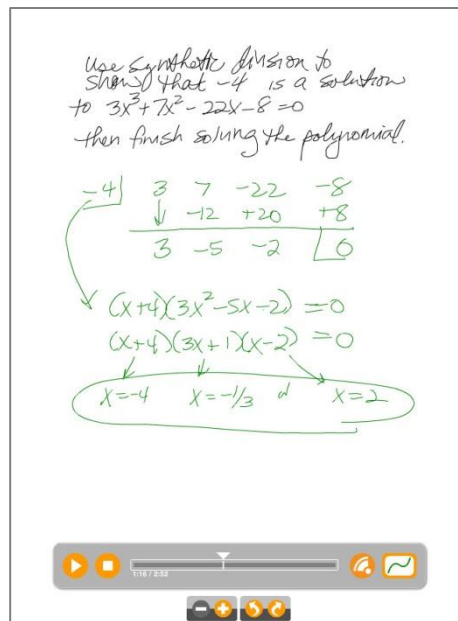 use synthetic division to
show that -4 is a solution
to 3x³+7x²-22x-8=0
then finish solving the polynomial.
-4| 3 7 -22 -8
↓ -12 +20 +8
3 -5 -2 |0
(x+4)(3x²-5x-2)=0
(x+4)(3x+1)(x-2)=0
x=-4 x=-1/3 x=2
1:16 / 2:52